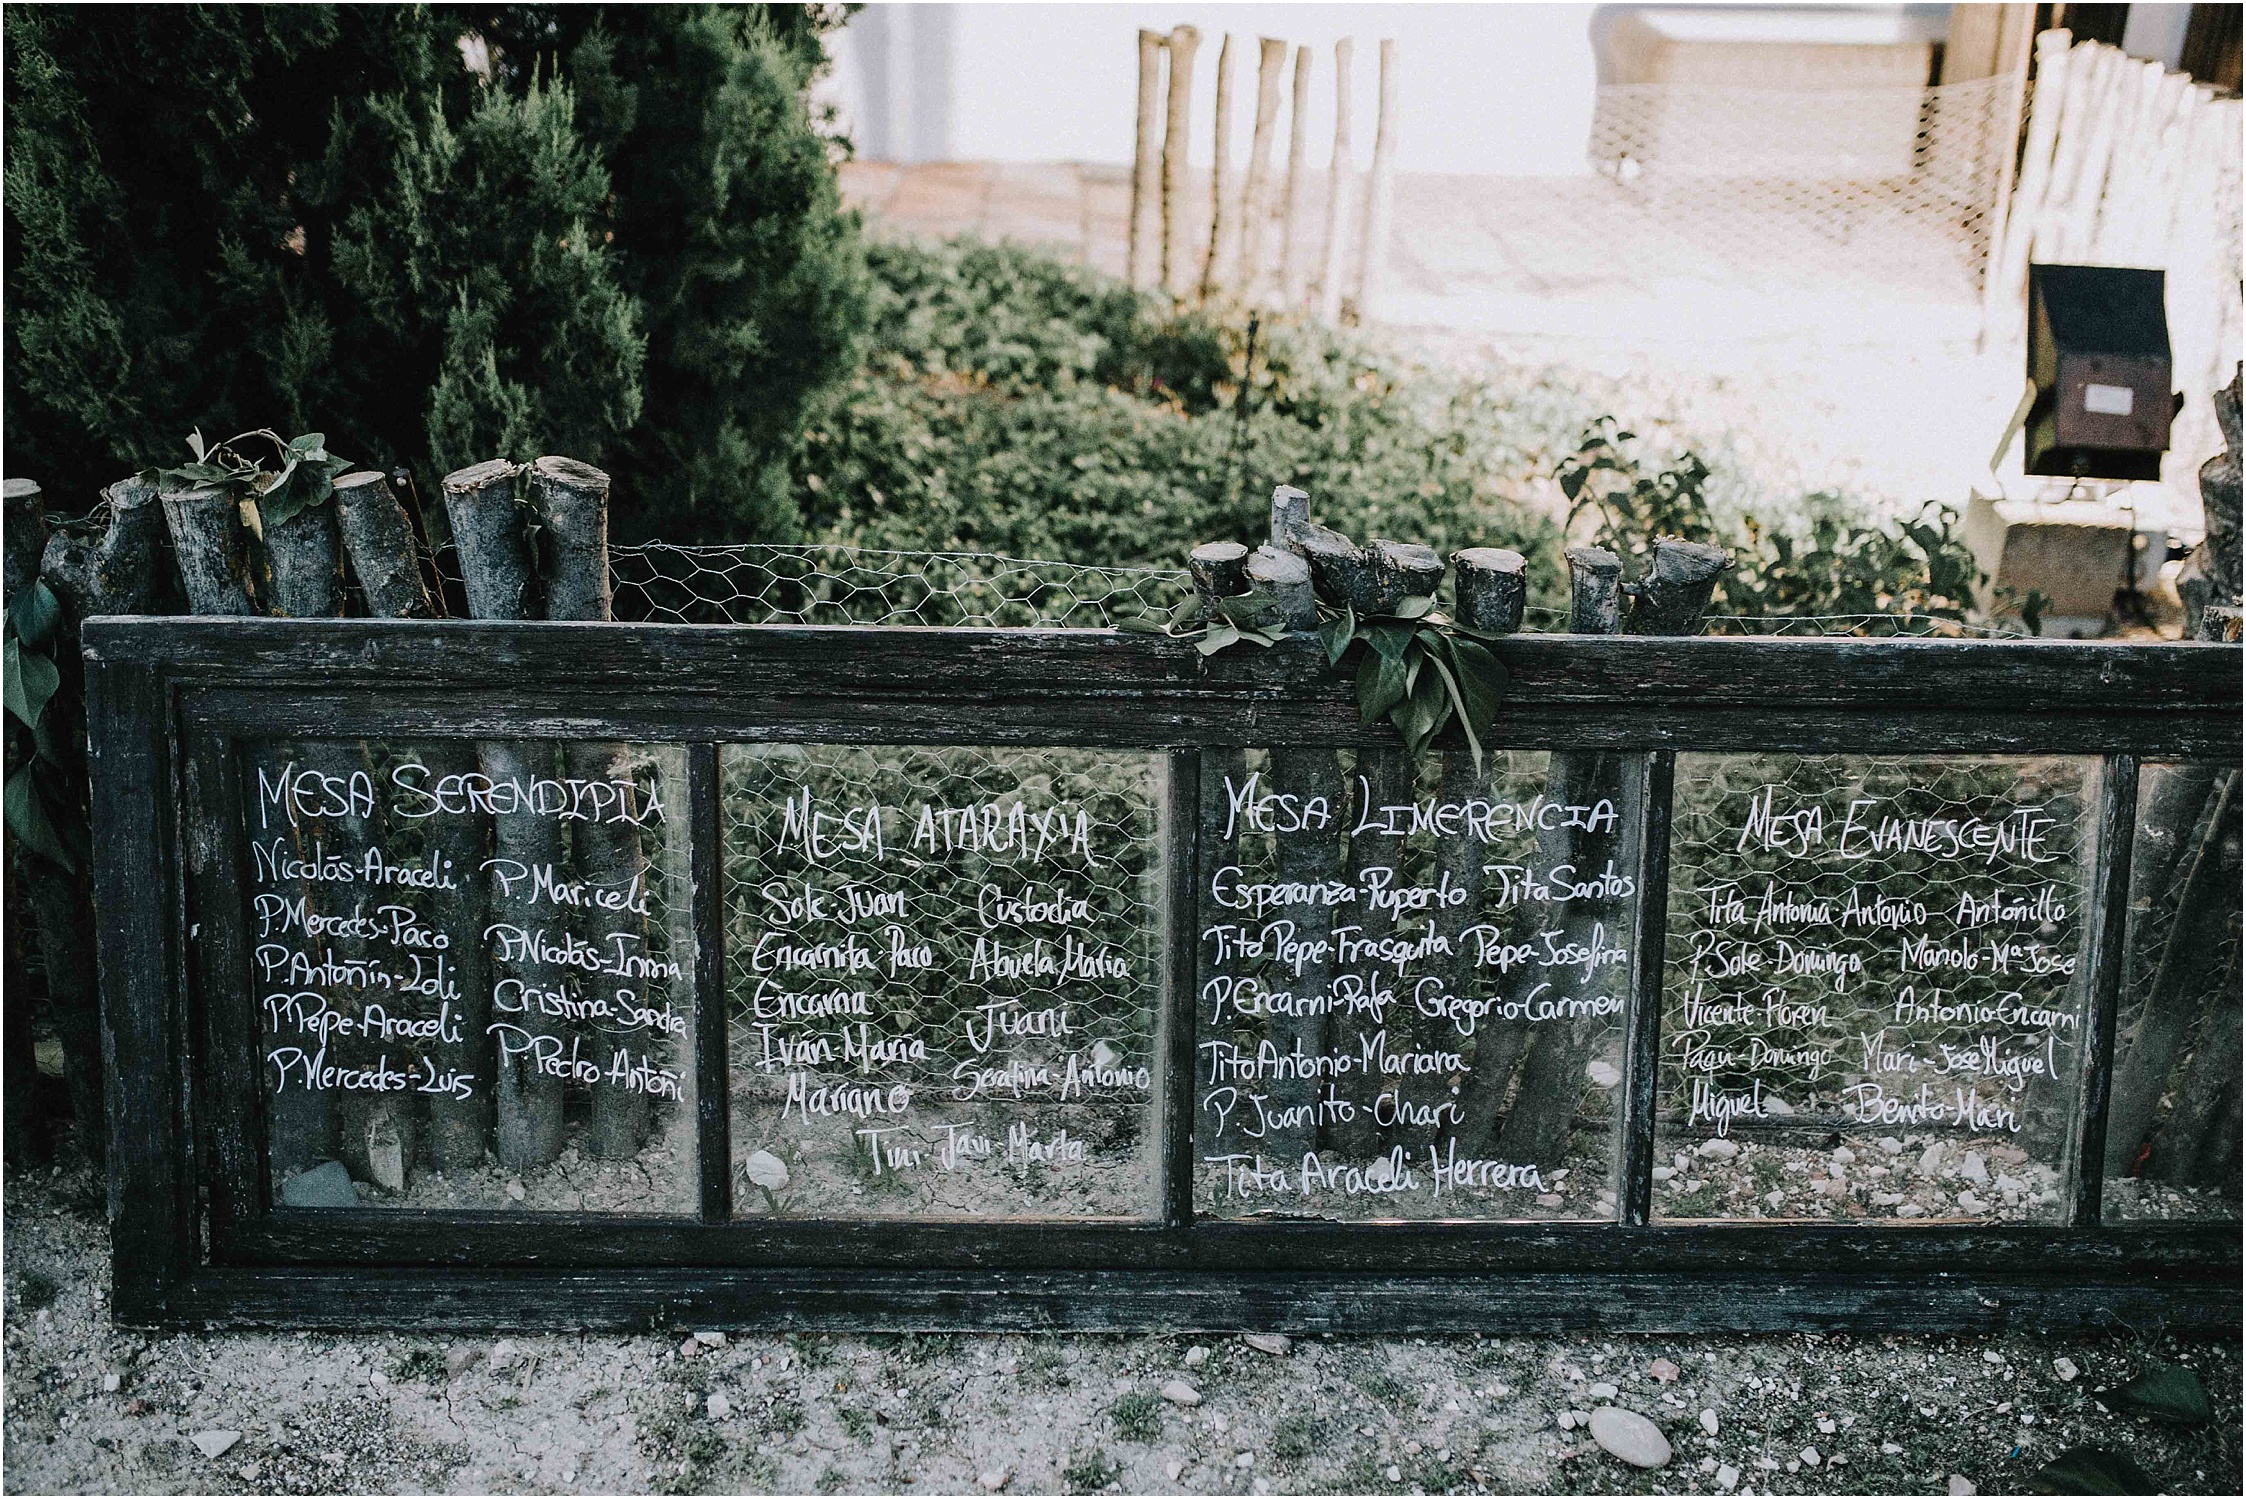 MESA SERENDIPIA
Nicolás-Araceli
P.Mercedes-Paco
P.Antoñín-Loli
P.Pepe-Araceli
P.Mercedes-Luis
P.Mariceli
P.Nicolás-Inma
Cristina-Sandra
P.Pedro-Antoñi
MESA ATARAXIA
Sole-Juan
Encarnita-Paco
Encarna
Iván-María
Mariano
Custodia
Abuela María
Juani
Serafina-Antonio
Tini-Javi-Marta
MESA LIMERENCIA
Esperanza-Ruperto
Tito Pepe-Frasquita
P.Encarni-Rafa
Tito Antonio-Mariara
P.Juanito-Chari
Tita Araceli Herrera
Tita Santos
Pepe-Josefina
Gregorio-Carmen
MESA EVANESCENTE
Tita Antonia Antonio
P.Sole-Domingo
Vicente-Floren
Paqui-Domingo
Miguel
Antoñillo
Manolo-Mª Jose
Antonio-Encarni
Mari-Jose Miguel
Benito-Mari